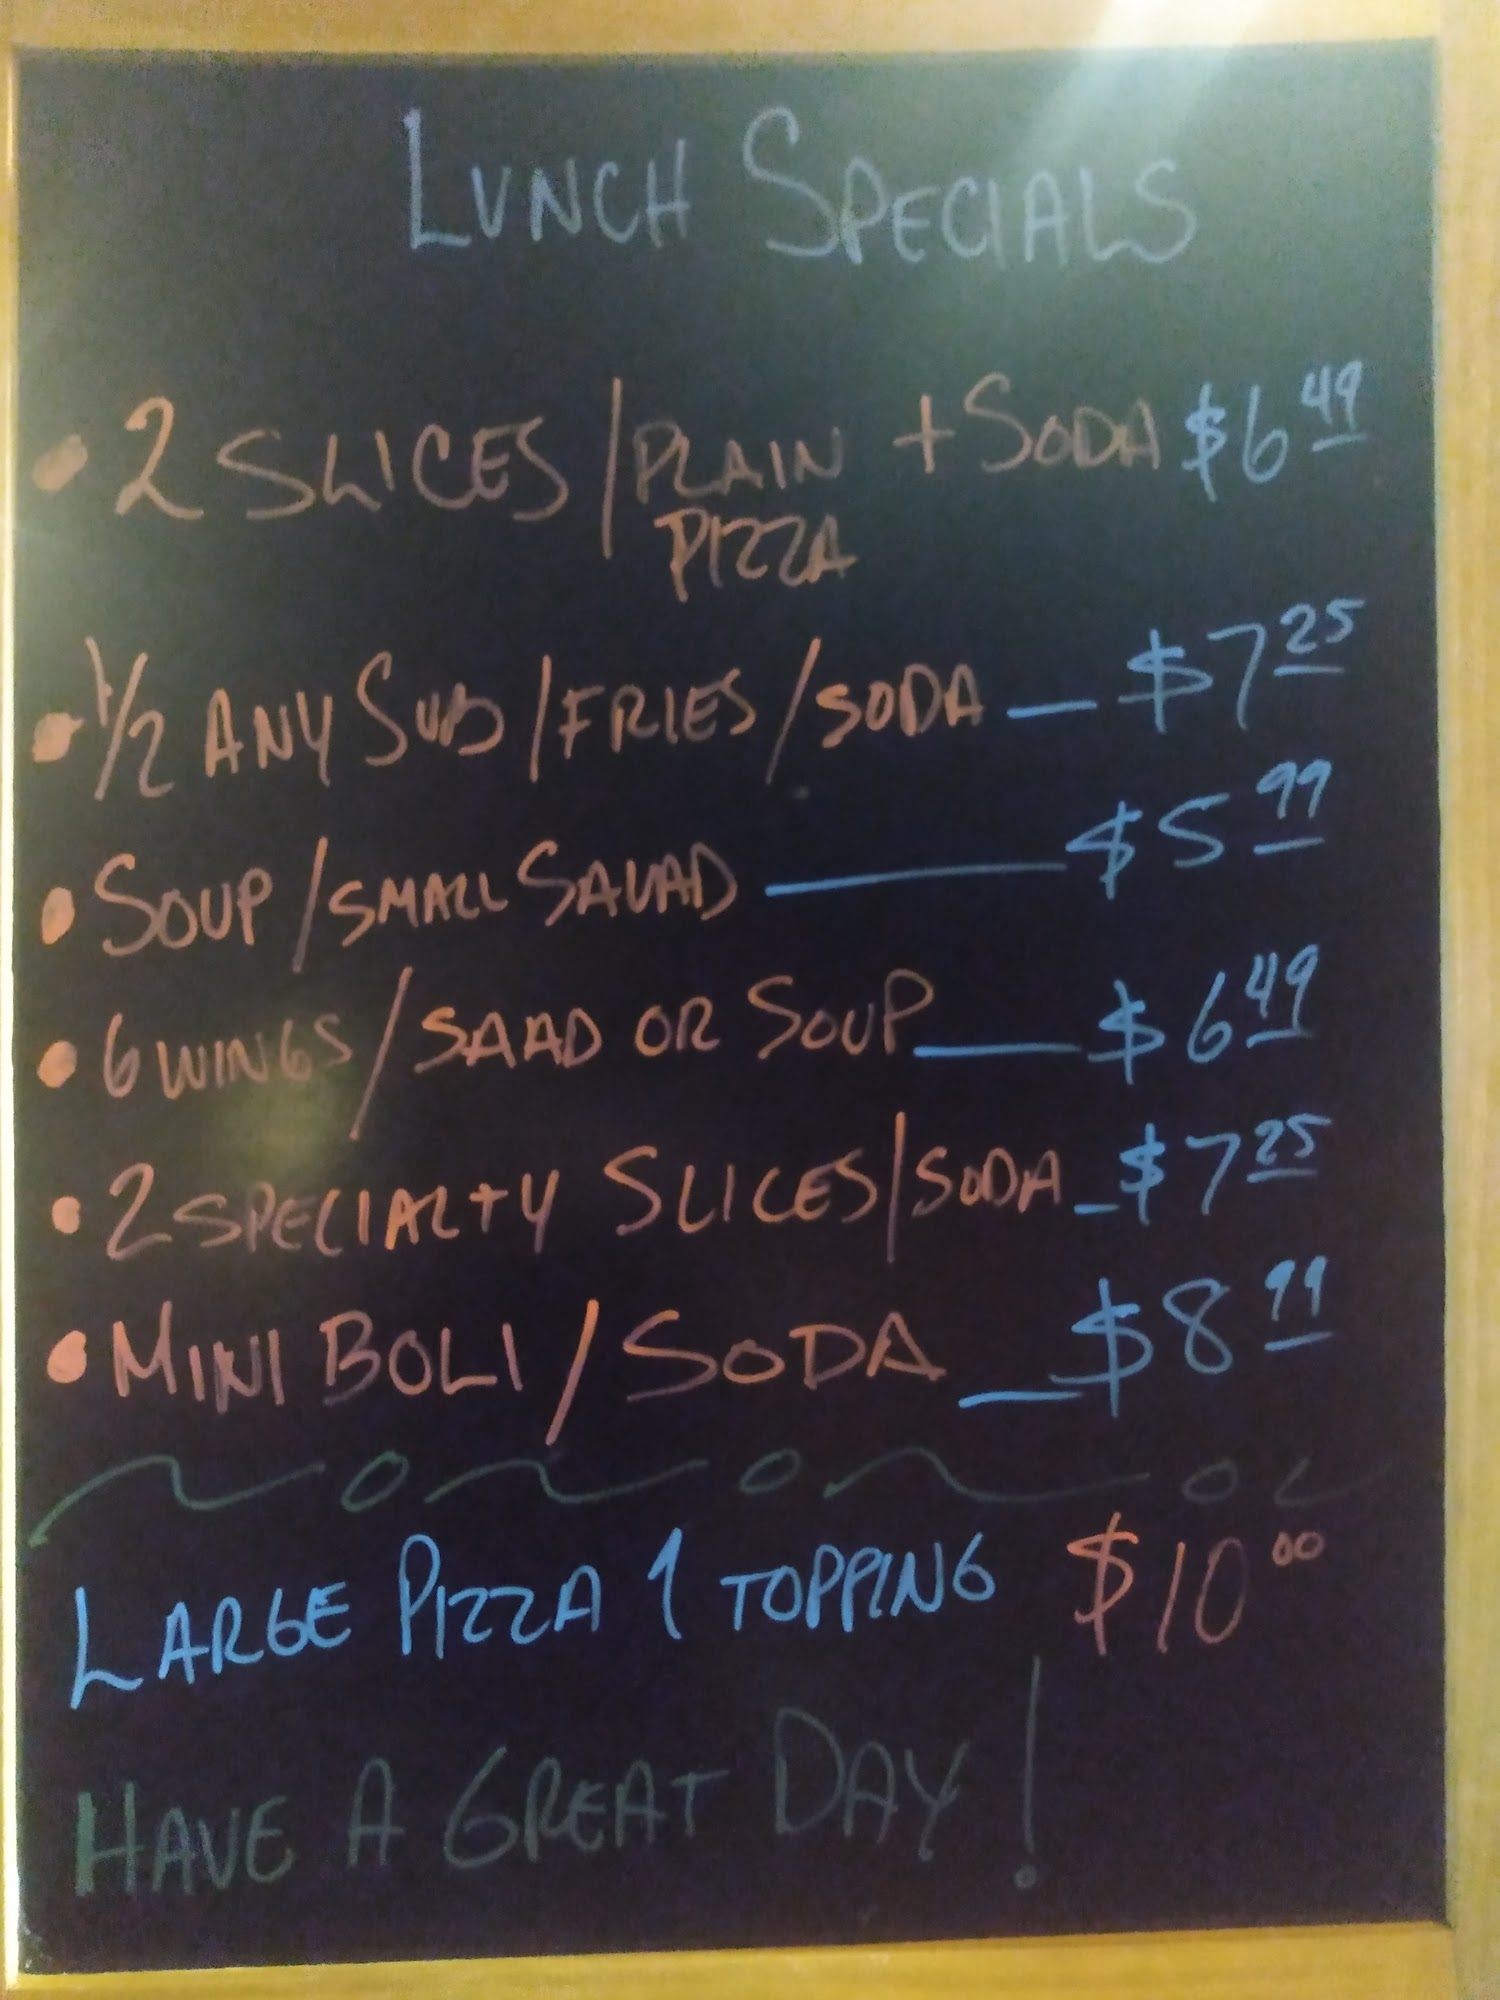 LUNCH SPECIALS
• 2 SLICES / PLAIN + SODA $6.49
PIZZA
• 1/2 ANY SUB / FRIES / SODA — $7.25
• SOUP / SMALL SALAD — $5.99
• 6 WINGS / SALAD OR SOUP — $6.49
• 2 SPECIALTY SLICES / SODA - $7.25
• MINI BOLI / SODA — $8.99
LARGE PIZZA 1 TOPPING $10.00
HAVE A GREAT DAY!